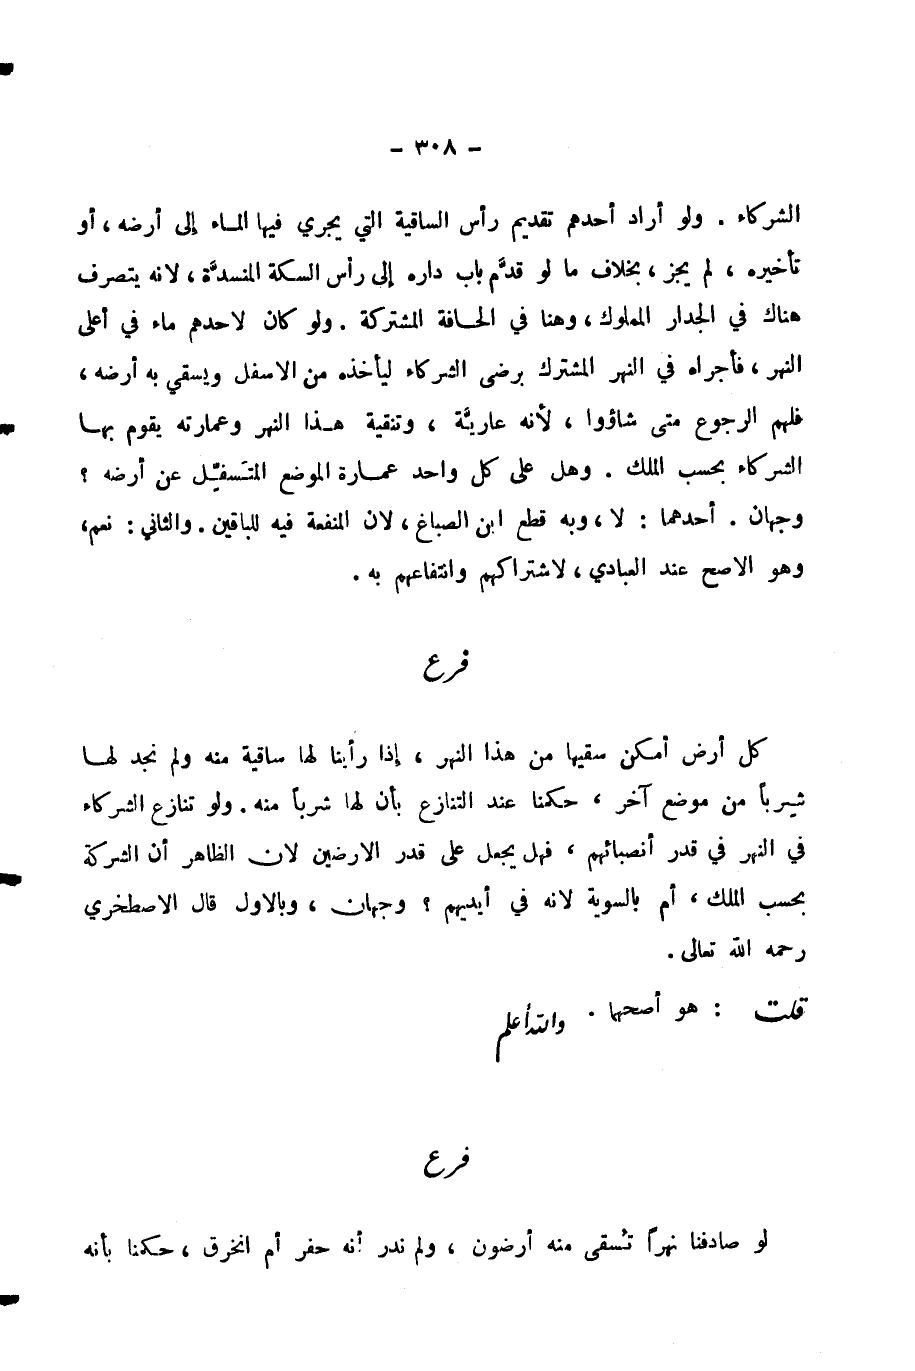 - ٣٠٨ -
الشركاء . ولو أراد أحدهم تقديم رأس الساقية التي يجري فيها المـاء إلى أرضه ، أو
تأخيره ، لم يجز ، بخلاف ما لو قدَّم باب داره إلى رأس السكة المنسدَّة ، لانه يتصرف
هناك في الجدار المملوك ، وهنا في الحـافة المشتركة . ولو كان لاحدهم ماء في أعلى
النهر ، فأجراه في النهر المشترك برضى الشركاء ليأخذه من الاسفل ويسقي به أرضه ،
فلهم الرجوع متى شاؤوا ، لأنه عاريَّة ، وتنقية هـذا النهر وعمارته يقوم بهـا
الشركاء بحسب الملك . وهل على كل واحد عمـارة الموضع المتَسفِّل عن أرضه ؟
وجهان . أحدهما : لا ، وبه قطع ابن الصباغ ، لان المنفعة فيه للباقين . والثاني : نعم ،
وهو الاصح عند العبادي ، لاشتراكهم وانتفاعهم به .
فرع
كل أرض أمكن سقيها من هذا النهر ، إذا رأينا لها ساقية منه ولم نجد لهـا
شِرباً من موضع آخر ، حكمنا عند التنازع بأن لها شرباً منه . ولو تنازع الشركاء
في النهر في قدر أنصبائهم ، فهل يجعل على قدر الارضين لان الظاهر أن الشركة
بحسب الملك ، أم بالسوية لانه في أيديهم ؟ وجهان ، وبالاول قال الاصطخري
رحمه الله تعالى .
قلت : هو أصحها . والله أعلم
فرع
لو صادفنا نهراً تُسقى منه أرضون ، ولم ندر أنه حفر أم انخرق ، حكمنا بأنه